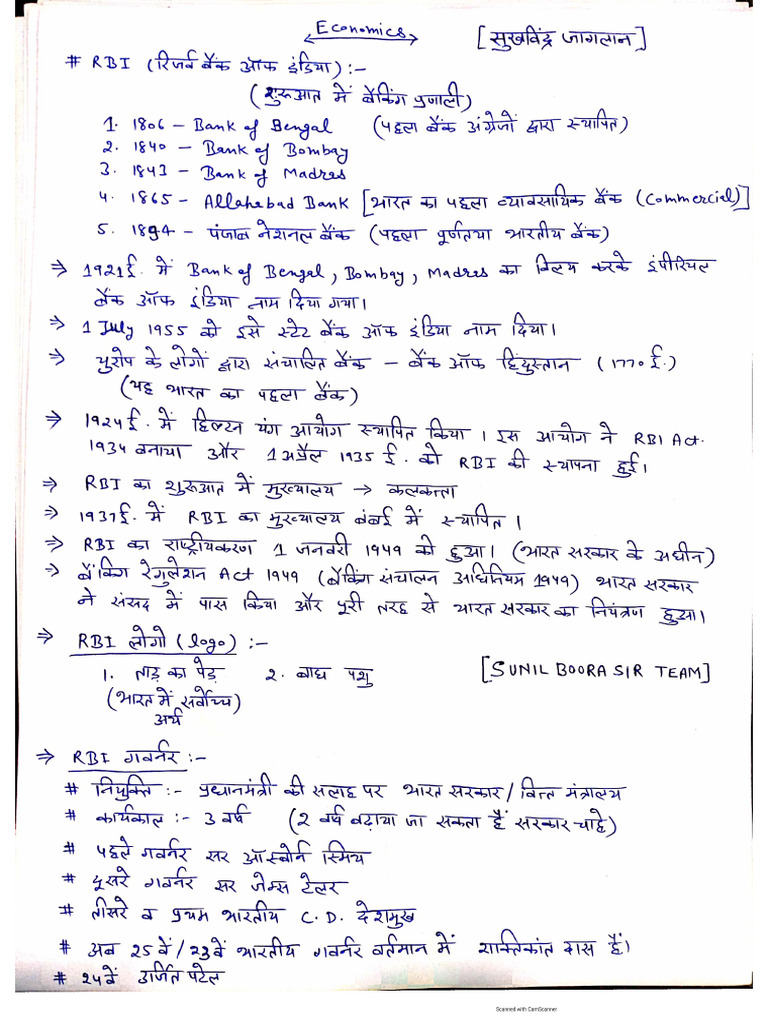 Economics [सुखविंद्र जागलान]
# RBI (रिजर्व बैंक ऑफ इंडिया) :-
(शुरूआत में बैंकिंग प्रणाली)
1. 1806 – Bank of Bengal (पहला बैंक अंग्रेजों द्वारा स्थापित)
2. 1840 – Bank of Bombay
3. 1843 – Bank of Madres
4. 1865 – Allahabad Bank [भारत का पहला व्यावसायिक बैंक (Commercial)]
5. 1894 – पंजाब नेशनल बैंक (पहला पूर्णतया भारतीय बैंक)
⇒ 1921ई. में Bank of Bengal, Bombay, Madres का विलय करके इंपीरियल
बैंक ऑफ इंडिया नाम दिया गया।
⇒ 1 July 1955 को इसे स्टेट बैंक ऑफ इंडिया नाम दिया।
⇒ युरोप के लोगों द्वारा संचालित बैंक – बैंक ऑफ हिंदुस्तान (1770 ई.)
(यह भारत का पहला बैंक)
⇒ 1924ई. में हिल्टन यंग आयोग स्थापित किया। इस आयोग ने RBI Act.
1934 बनाया और 1 अप्रैल 1935 ई. को RBI की स्थापना हुई।
⇒ RBI का शुरूआत में मुख्यालय → कलकत्ता
⇒ 1937ई. में RBI का मुख्यालय बंबई में स्थापित।
⇒ RBI का राष्ट्रीयकरण 1 जनवरी 1949 को हुआ। (भारत सरकार के अधीन)
⇒ बैंकिंग रेगुलेशन Act 1949 (बैंकिंग संचालन अधिनियम 1949) भारत सरकार
ने संसद में पास किया और पूरी तरह से भारत सरकार का नियंत्रण हुआ।
⇒ RBI लोगो (logo) :-
1. ताड़ का पेड़ 2. बाघ पशु [SUNIL BOORA SIR TEAM]
(भारत में सर्वोच्च)
अर्थ
⇒ RBI गवर्नर :-
# नियुक्ति :- प्रधानमंत्री की सलाह पर भारत सरकार/वित्त मंत्रालय
# कार्यकाल :- 3 वर्ष (2 वर्ष बढ़ाया जा सकता हैं सरकार चाहे)
# पहले गवर्नर सर ऑस्बोर्न स्मिथ
# दूसरे गवर्नर सर जेम्स टेलर
# तीसरे व प्रथम भारतीय C. D. देशमुख
# अब 25वें/23वें भारतीय गवर्नर वर्तमान में शक्तिकांत दास हैं।
# 24वें उर्जित पटेल
Scanned with CamScanner